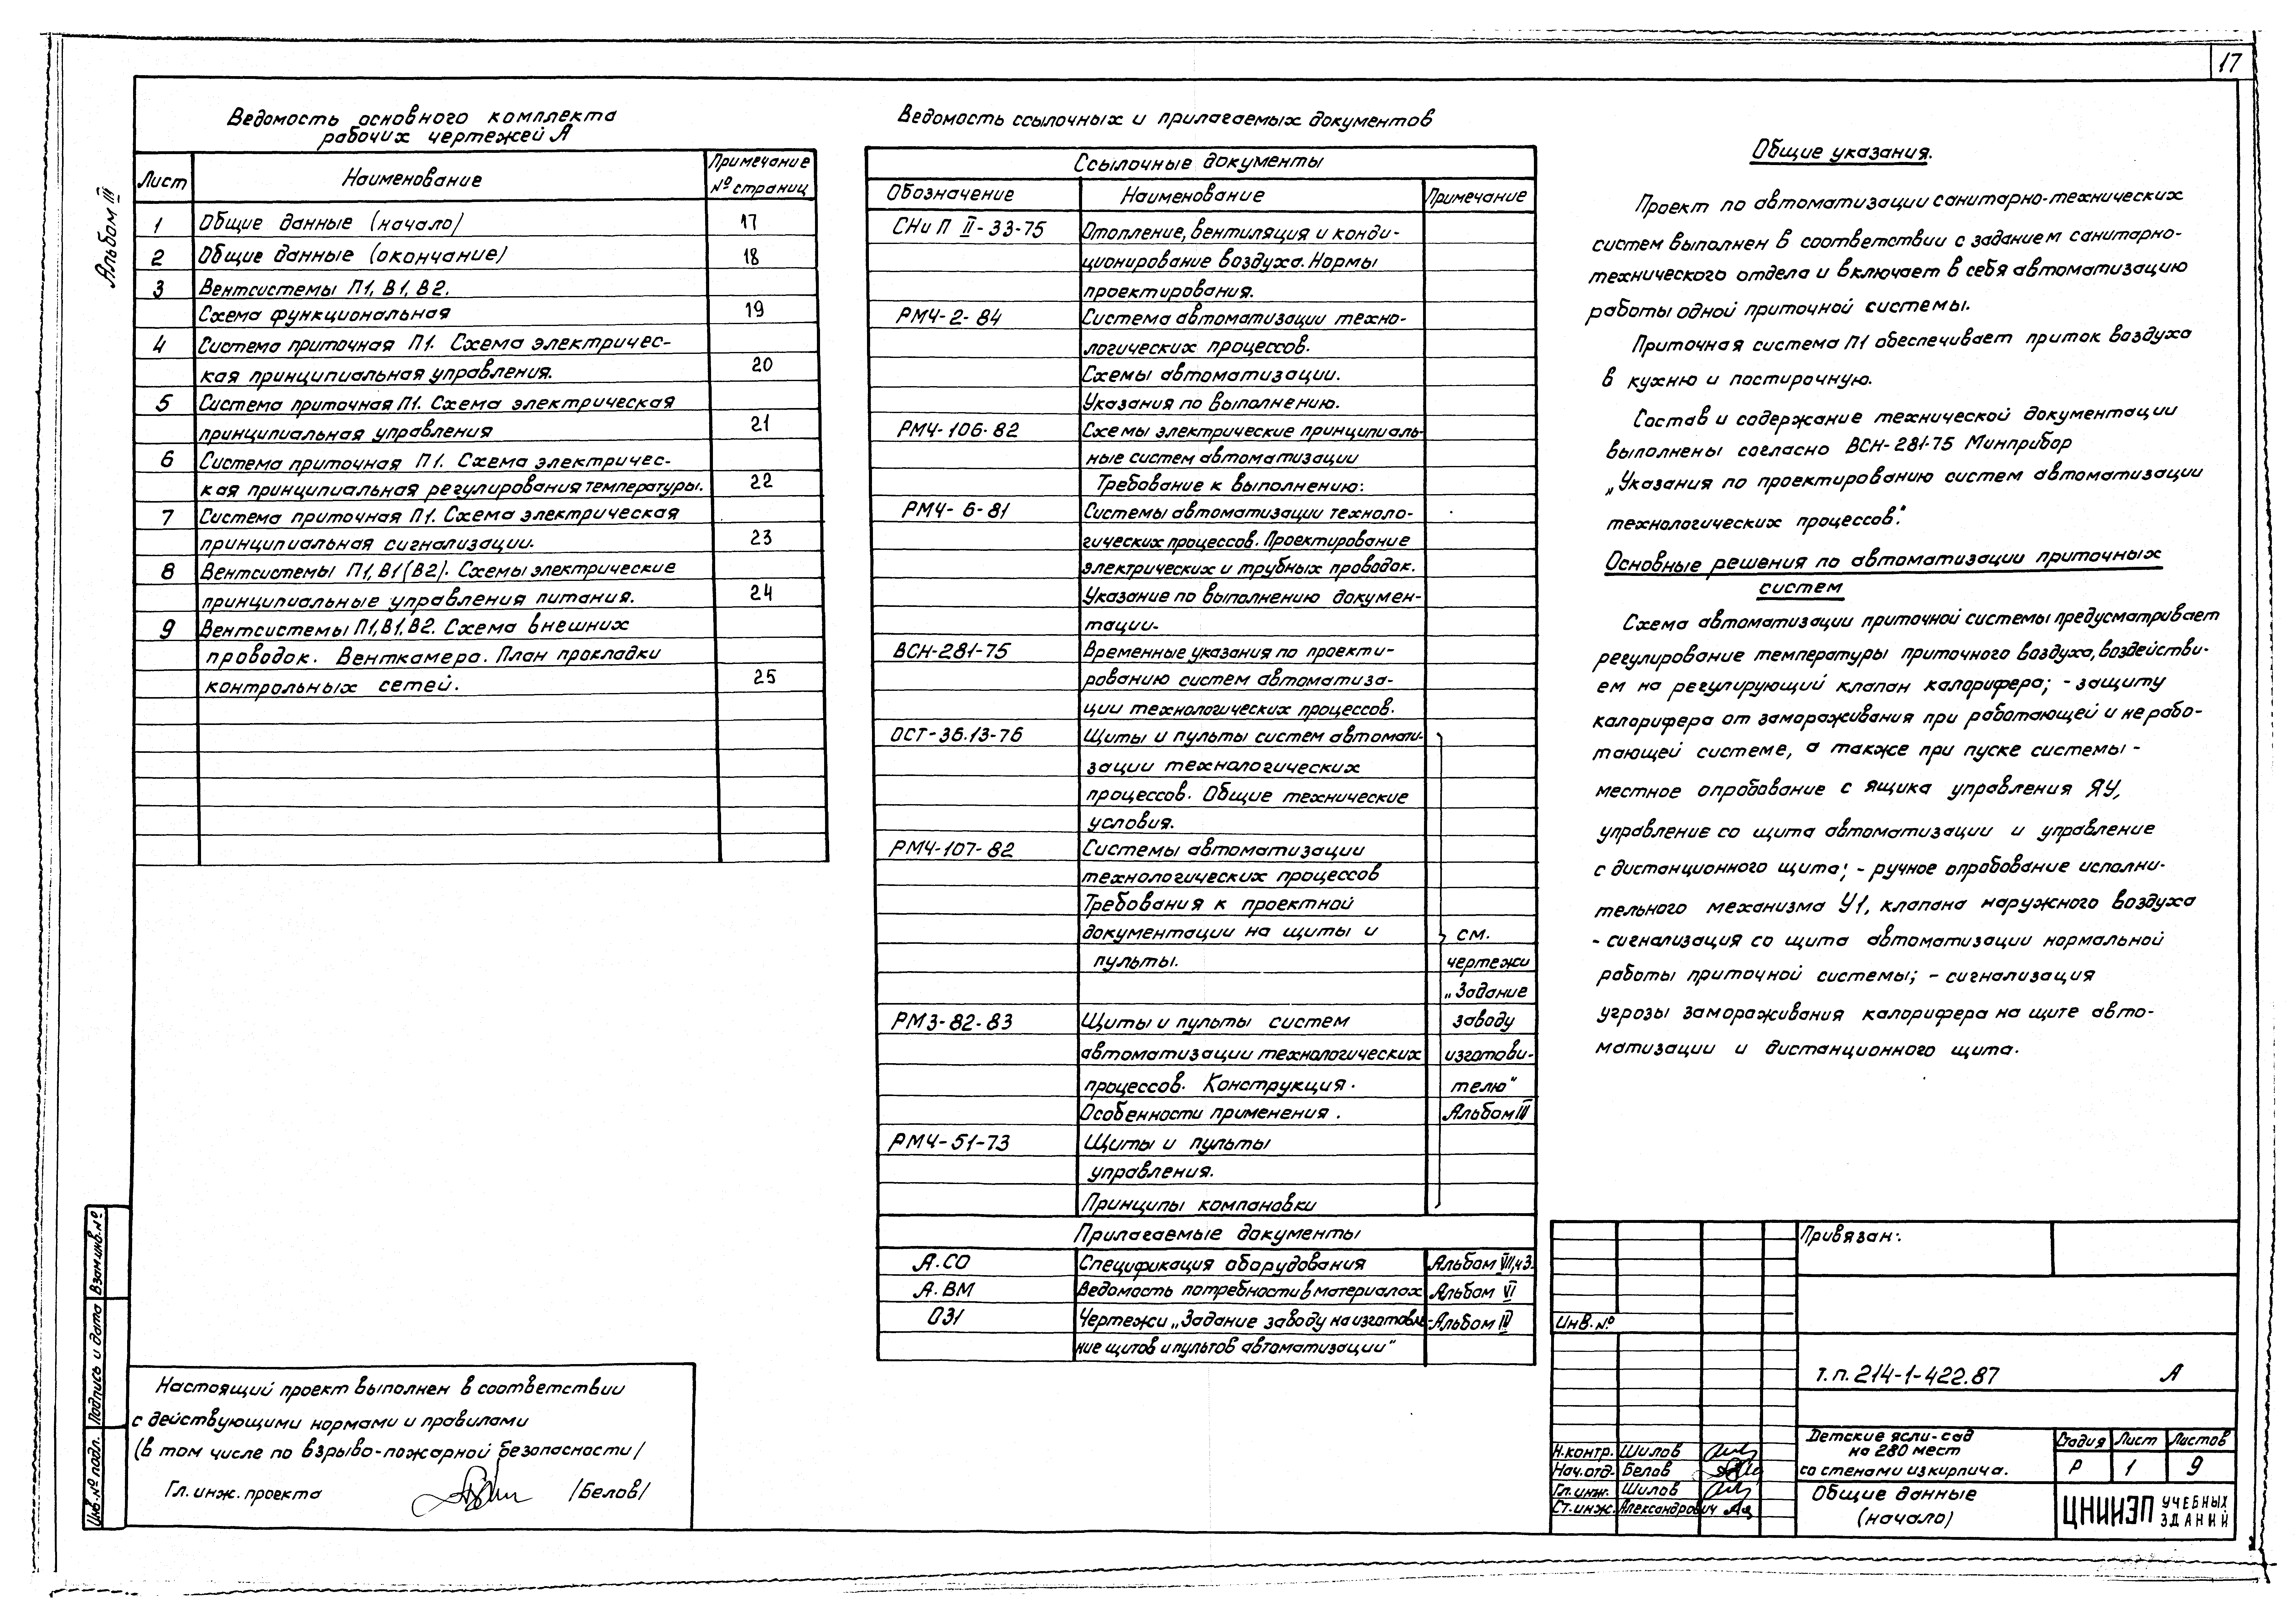 17
Альбом III
Ведомость основного комплекта
рабочих чертежей А
Лист Наименование Примечание № страниц
1 Общие данные (начало) 17
2 Общие данные (окончание) 18
3 Вентсистемы П1, В1, В2.
Схема функциональная 19
4 Система приточная П1. Схема электричес-
кая принципиальная управления. 20
5 Система приточная П1. Схема электрическая
принципиальная управления 21
6 Система приточная П1. Схема электричес-
кая принципиальная регулирования температуры. 22
7 Система приточная П1. Схема электрическая
принципиальная сигнализации. 23
8 Вентсистемы П1, В1(В2). Схемы электрические
принципиальные управления питания. 24
9 Вентсистемы П1, В1, В2. Схема внешних
проводок. Венткамера. План прокладки
контрольных сетей. 25
Ведомость ссылочных и прилагаемых документов
Ссылочные документы
Обозначение Наименование Примечание
СНиП II-33-75 Отопление, вентиляция и конди-
ционирование воздуха. Нормы
проектирования.
РМ4-2-84 Система автоматизации техно-
логических процессов.
Схемы автоматизации.
Указания по выполнению.
РМ4-106-82 Схемы электрические принципиаль-
ные систем автоматизации
Требование к выполнению:
РМ4-6-81 Системы автоматизации техноло-
гических процессов. Проектирование
электрических и трубных проводок.
Указание по выполнению докумен-
тации.
ВСН-281-75 Временные указания по проекти-
рованию систем автоматиза-
ции технологических процессов.
ОСТ-36.13-76 Щиты и пульты систем автомати-
зации технологических
процессов. Общие технические
условия.
РМ4-107-82 Системы автоматизации
технологических процессов
Требования к проектной
документации на щиты и см.
пульты. чертежи
„Задание
РМ3-82-83 Щиты и пульты систем заводу
автоматизации технологических изготови-
процессов. Конструкция. телю"
Особенности применения. Альбом III
РМ4-51-73 Щиты и пульты
управления.
Принципы компановки
Прилагаемые документы
А.СО Спецификация оборудования Альбом VII, ч3.
А.ВМ Ведомость потребности в материалах Альбом VI
ОЗ1 Чертежи „Задание заводу на изготовле- Альбом IV
ние щитов и пультов автоматизации"
Общие указания.
Проект по автоматизации санитарно-технических
систем выполнен в соответствии с заданием санитарно-
технического отдела и включает в себя автоматизацию
работы одной приточной системы.
Приточная система П1 обеспечивает приток воздуха
в кухню и постирочную.
Состав и содержание технической документации
выполнены согласно ВСН-281-75 Минприбор
„Указания по проектированию систем автоматизации
технологических процессов".
Основные решения по автоматизации приточных
систем
Схема автоматизации приточной системы предусматривает
регулирование температуры приточного воздуха, воздействи-
ем на регулирующий клапан калорифера; - защиту
калорифера от замораживания при работающей и нерабо-
тающей системе, а также при пуске системы -
местное опробование с ящика управления ЯУ,
управление со щита автоматизации и управление
с дистанционного щита; - ручное опробование исполни-
тельного механизма У1, клапана наружного воздуха
- сигнализация со щита автоматизации нормальной
работы приточной системы; - сигнализация
угрозы замораживания калорифера на щите авто-
матизации и дистанционного щита.
Настоящий проект выполнен в соответствии
с действующими нормами и правилами
(в том числе по взрыво-пожарной безопасности)
Гл. инж. проекта /Белов/
Взам.инв.№
Подпись и дата
Инв.№ подл.
Привязан:
Инв.№
т.п. 214-1-422.87 А
Н.контр. Шилов
Нач.отд. Белов
Гл.инж. Шилов
Ст.инж. Александрович
Детские ясли-сад
на 280 мест
со стенами из кирпича.
Стадия Лист Листов
Р 1 9
Общие данные
(начало)
ЦНИИЭП УЧЕБНЫХ ЗДАНИЙ